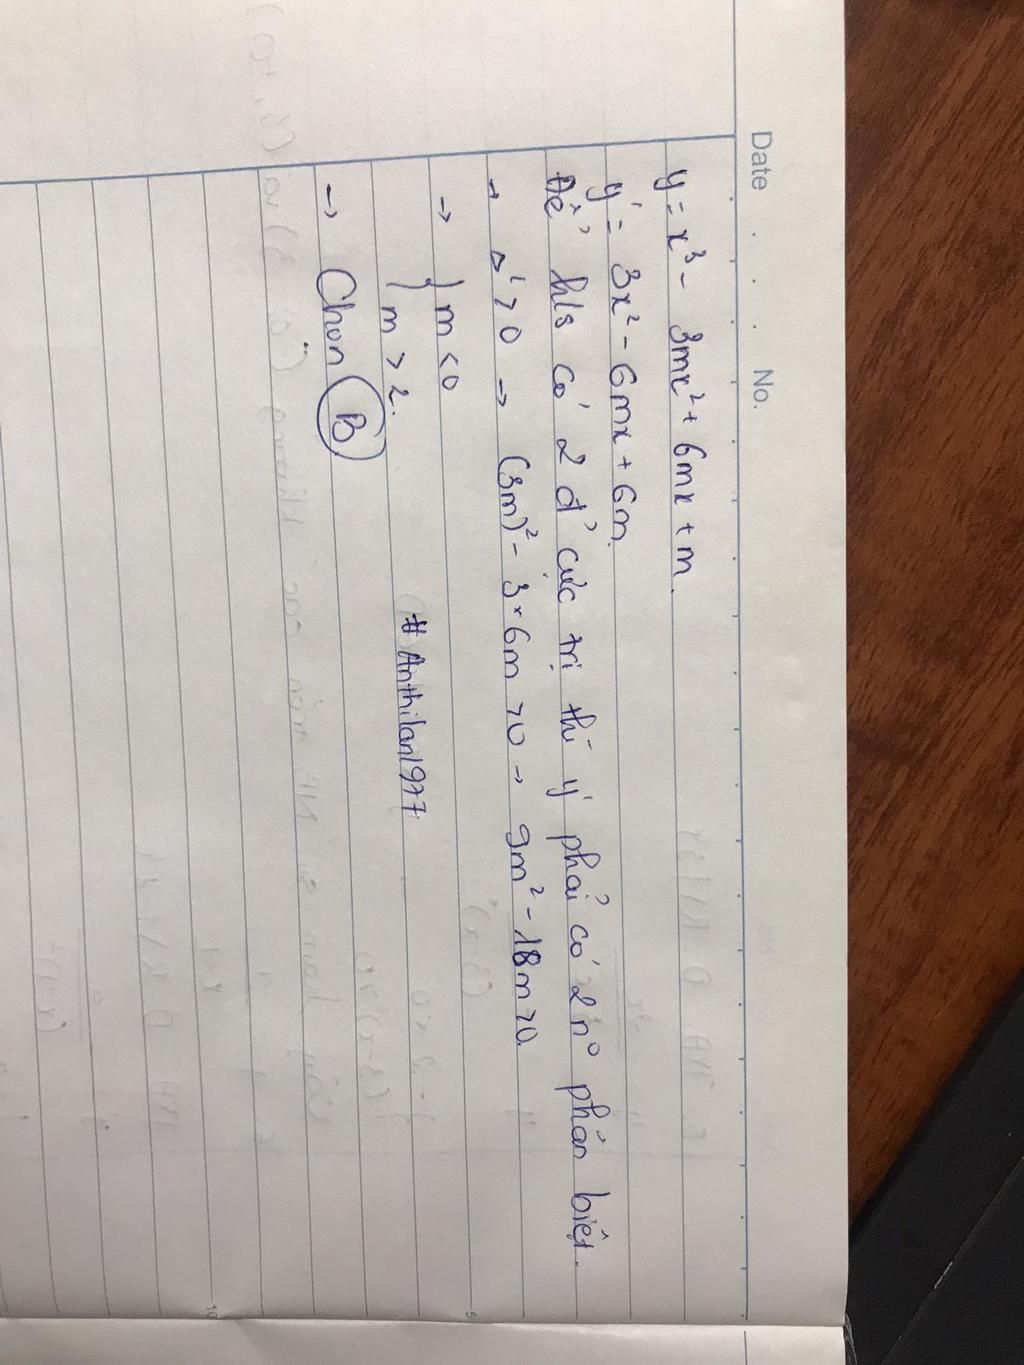 Date . . . No.
y = x³ - 3mx² + 6mx + m.
y' = 3x² - 6mx + 6m.
Để h/s có 2 đ' cực trị thì y' phải có 2 n⁰ phân biệt.
→ Δ' > 0 → (3m)² - 3×6m > 0 → 9m² - 18m > 0.
→ { m < 0
m > 2.
# Anthilan1977
→ Chọn B
5
10